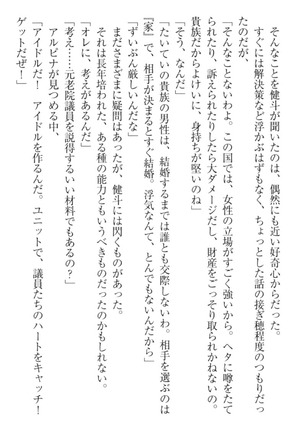 そんなことを健斗が聞いたのは、偶然にも近い好奇心からだった。
すぐには解決策など浮かぶはずもなく、ちょっとした話の接ぎ穂程度のつもりだっ
たのだが、
「そんなことないわよ。この国では、女性の立場がすごく強いから。ヘタに噂をたて
られたり、訴えられたりしたら大ダメージだし、財産をごっそり取られかねないの。
貴族だからよけいに、身持ちが堅いのね」
「そう、なんだ」
「たいていの貴族の男性は、結婚するまでは誰とも交際しないわ。相手を選ぶのは
『家』で、相手が決まるとすぐ結婚。浮気なんて、とんでもないんだから」
「ずいぶん厳しいんだな」
まださまざまに疑問はあったが、健斗には閃くものがあった。
それは長年培われた、ある種の能力ともいうべきものだったのかもしれない。
「オレに、考えがあるんだ」
「考え……元老院議員を説得するいい材料でもあるの？」
アルビナが見つめる中、
「アイドルだ！　アイドルを作るんだ。ユニットで、議員たちのハートをキャッチ！
ゲットだぜ！」